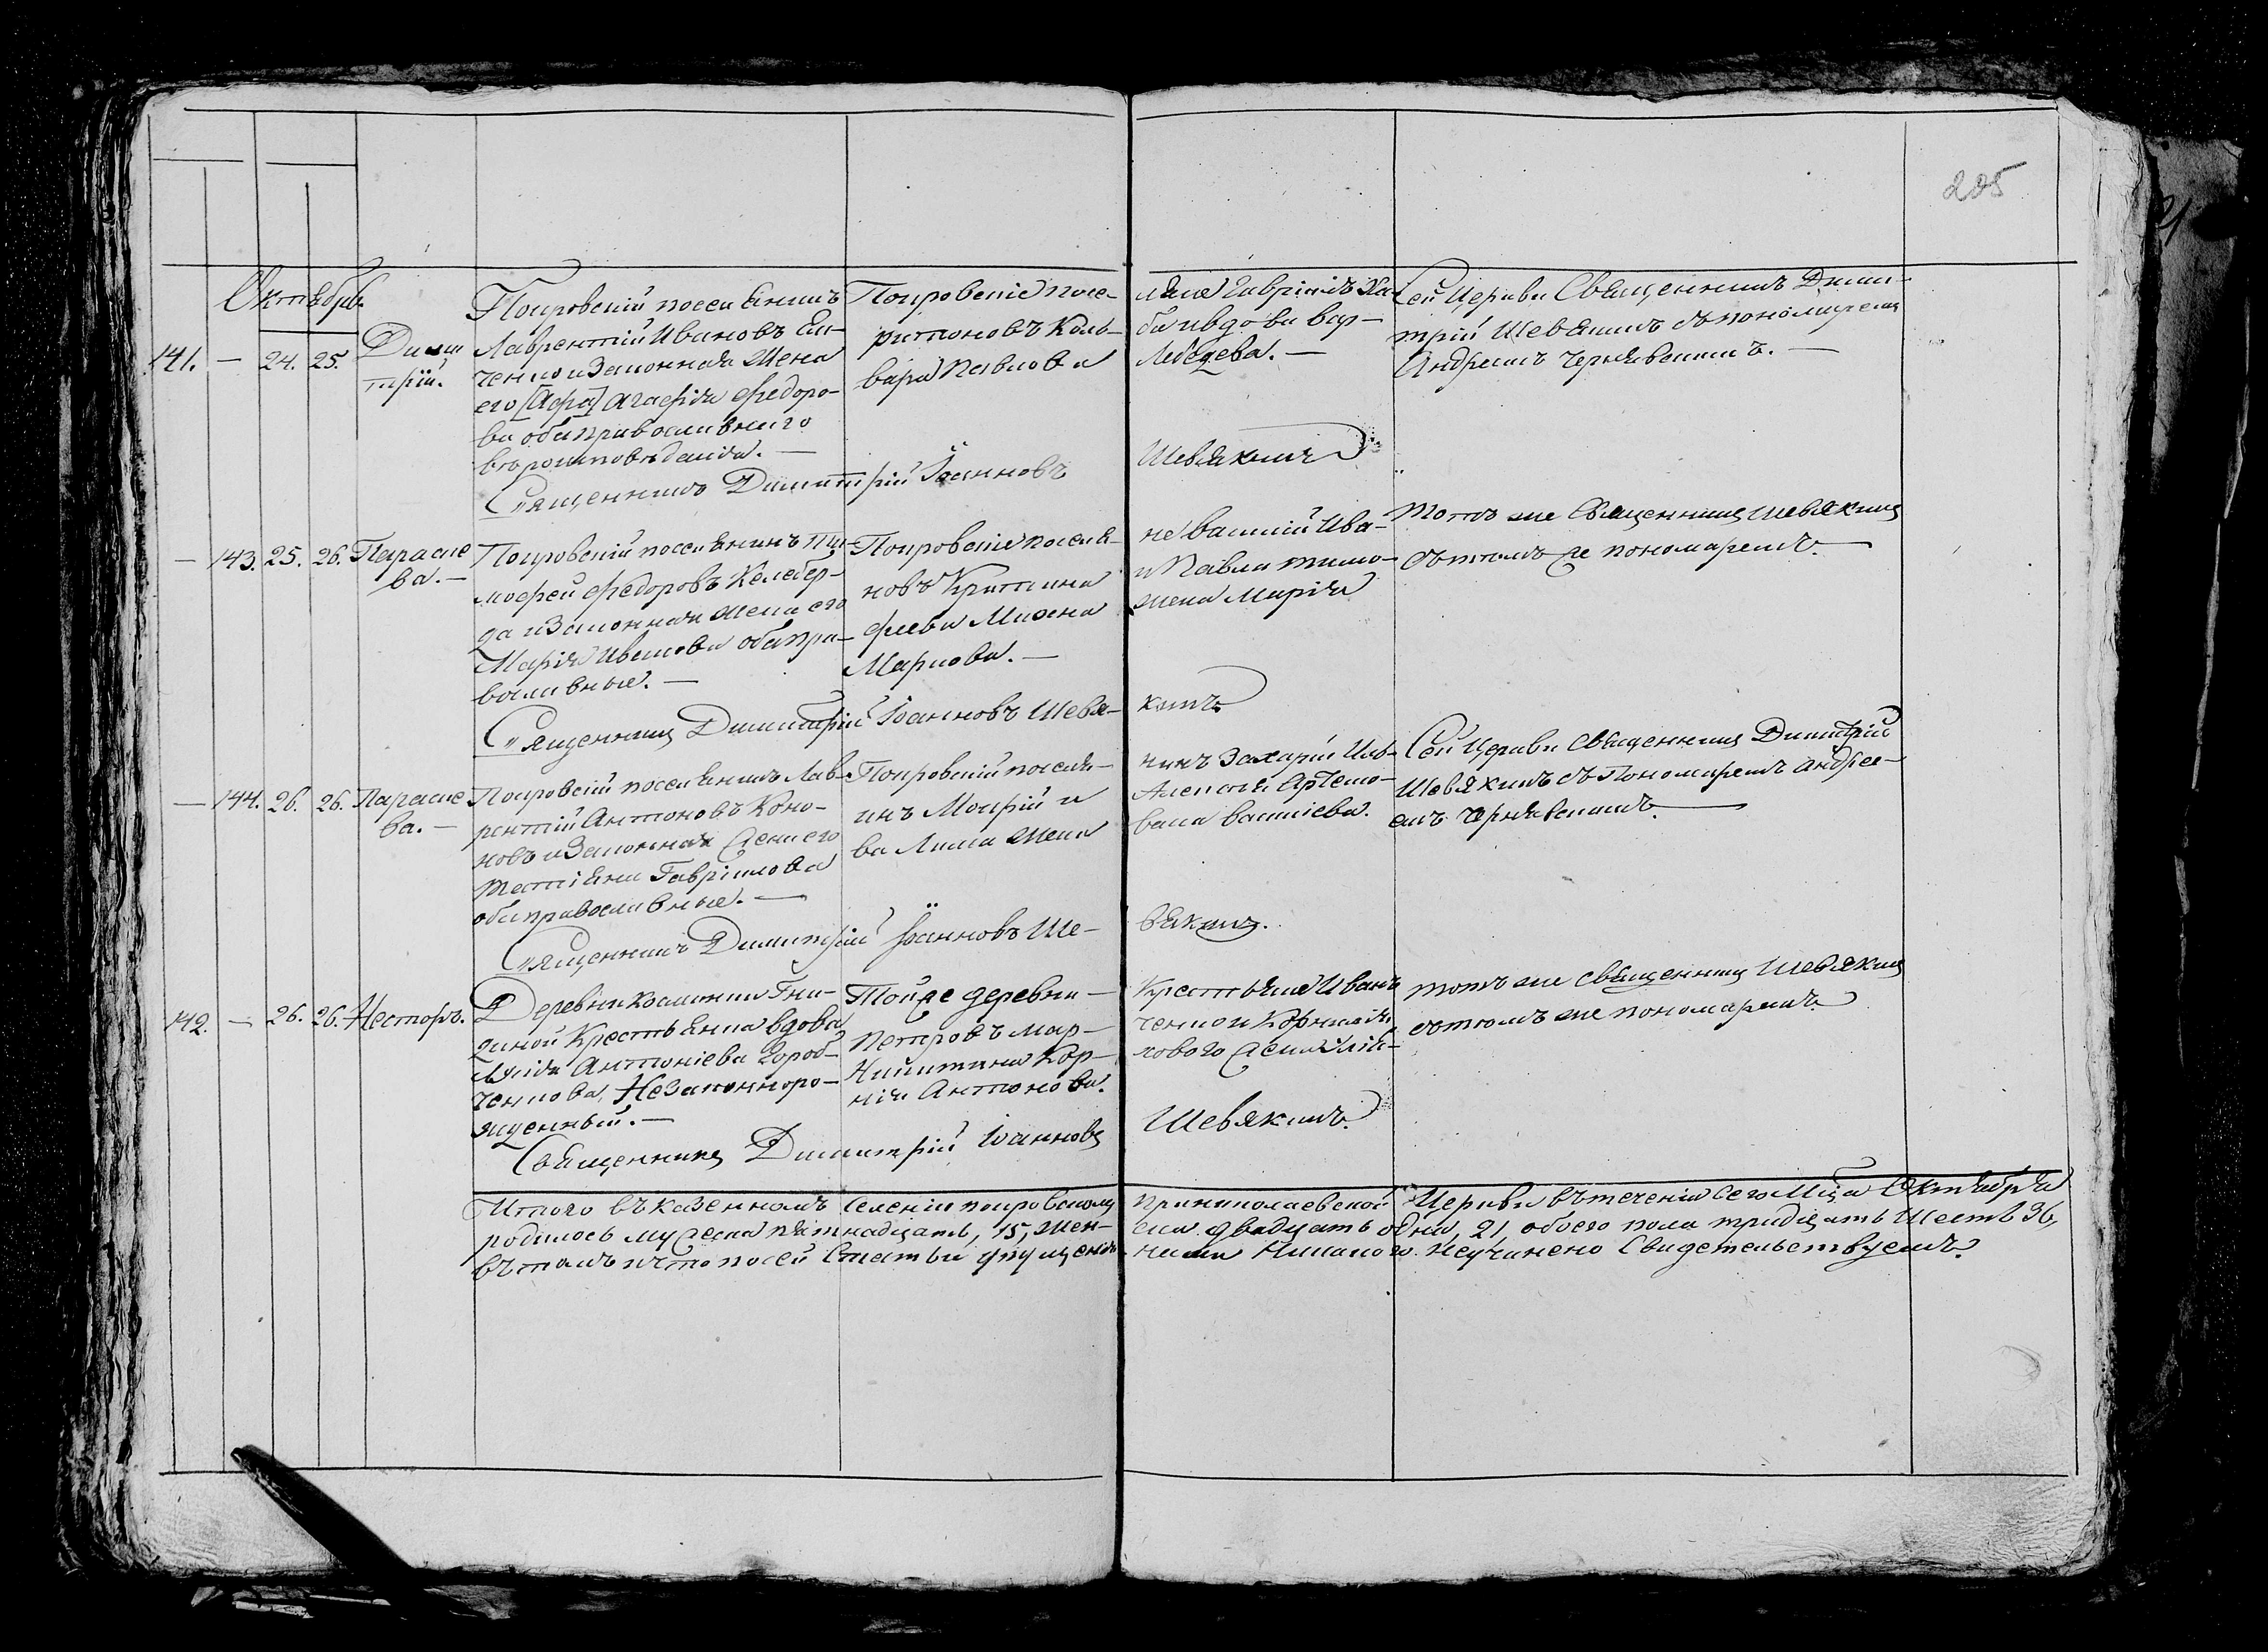 205
Октябрь
141. — 24. 25. Дими
трій.
Покровскій поселянинъ
Лаврентій Ивановъ
ченко и Законная Жена
его [Афа] Агафія Федоро-
ва оба православнаго
вѣроисповѣданія. —
Покровскіе посе-
ритоновъ Коль-
вара Павлова
ляне Гавріилъ Ха-
ба и вдова вар-
Лебедева. —
Сей Церкви Священникъ Дими-
трій Шевякинъ съ пономаремъ
Андреемъ Чернявскимъ. —
Священникъ Димитрій Іоанновъ Шевякинъ
— 143. 25. 26. Параске
ва. —
Покровскій поселянинъ Ти-
мофей Федоровъ Келебер-
да и Законная жена его
Марія Иванова оба пра-
вославные. —
Покровскіе поселя-
новъ Критина
феева Михена
Маркова. —
не Василій Ива-
и Павла тимо-
жена Марія
Тотъ же Священникъ Шевякинъ
съ тѣмъ же пономаремъ. —
Священникъ Димитрій Іоанновъ Шевя- кинъ
— 144. 26. 26. Параске
ва. —
Покровскій поселянинъ Лав-
рентій Антоновъ Коно-
новъ и Законная Жена его
Татіяна Гавріилова
оба православные. —
Покровскій поселя-
инъ Мокрій и
ва Лиша Жена
нинъ Захарій Иль-
Алексѣя Артемо-
васа Василіева.
Сей Церкви Священникъ Димитрій
Шевякинъ съ Пономаремъ Андре-
емъ Чернявскимъ. —
Священникъ Димитрій Іоанновъ Ше- вякинъ.
142. — 26. 26. Несторъ.
Деревни Косминки Гни-
диной Крестьянка вдова
Лукія Антоніева Город-
ченкова, Незаконноро-
жденный. —
Той же деревни —
Петровъ Мар-
Никитина Кор-
нія Антонова.
Крестьяне Иванъ
ченко и Корнилія
тотъ же священникъ Шевякинъ
съ тѣмъ же пономаремъ.
Священникъ Димитрій Іоанновъ Шевякинъ.
Итого въ казенномъ селеніи покровскомъ при николаевской Церкви въ теченіи сего Мца Октября
родилось мужеска пятнадцать, 15, жен- ска двадцать одна, 21 обоего пола тридцать Шесть 36,
въ томъ и что по сей Статьи упущенія никакого неучинено Свидетельствуемъ.